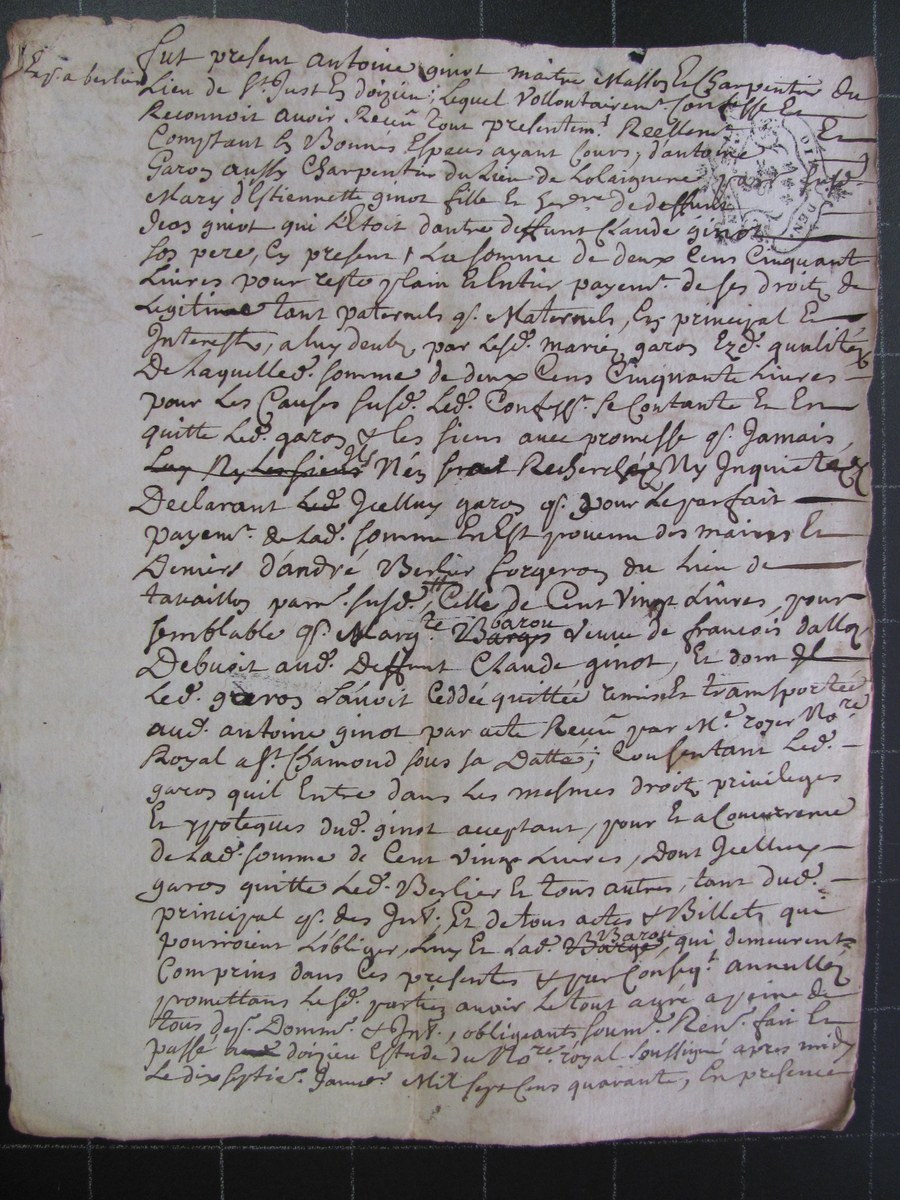 Exp.é a berlier
fut present antoine ginot maitre Masson Et Charpentier du
Lieu de St. Just En doizieu; Lequel Vollontairemt. Confesse Et
Reconnoit avoir Receu tout presentemt. Reellemt. Et
Comptant En Bonnes Especes ayant Cours, d'antoine
Garon aussy Charpentier du Lieu de
Mary d'Estiennette ginot fille Et de deffunt
Jean ginot qui L'Etoit d'autre deffunt Claude ginot
son pere, Cy present, La somme de deux Cens Cinquante
Livres pour reste plain Et Entier payemt. de ses droits de
Legitime tant paternels q. Maternels, En principal Et
Interests, a luy deubz par Lesd. mariez garon Ezd. qualités
De Laquelled. somme de deux Cens Cinquante Livres
pour Les Causes susd. Led. Confesst. se Contante Et En
quitte Led. garon & les siens avec promesse q. Jamais
Luy Ny Les siens Recherchéz Ny Inquietéz
Declarant Led. Icelluy garon q. pour Le parfait
payemt. de Lad. somme En Est provenu des mains Et
Deniers d'andré Berlier forgeron du Lieu de
tavaillon parr. susd., Celle de Cent Vingt Livres, pour
semblable q. Margte. Barge barou veuve de francois dallon
Debvoit aud. Deffunt Claude ginot, Et dont
Led. garon L'avoit Ceddée quittée remise Et transportée
aud. antoine ginot par acte Receu par Me. royer Nore.
Royal a St. Chamond sous sa Datte; Consentant Led.
garon quil Entre dans Les mesmes droits, privileges
Et ypoteques dud. ginot acceptant, pour Et a Concurrence
de Lad. somme de Cent Vingt Livres, Dont Icelluy
garon quitte Led. Berlier Et tous autres, tant dud.
principal q. des Int., Et de tous actes & Billets qui
pourroient L'obliger, Luy Et Lad. Barge Barou, qui demeurent
Comprins dans Ces presentes & par Conseqt. annullez
promettans Lesd. partiez avoir Le tout agré a peine de
tous desp. Dommr. & Int., obligeants, soumr. Renr. fait Et
passé aud doizieu Estude du Nore. royal soussigné apres midy
Le dix septier. Janvier Mil sept Cens quarante, En presence